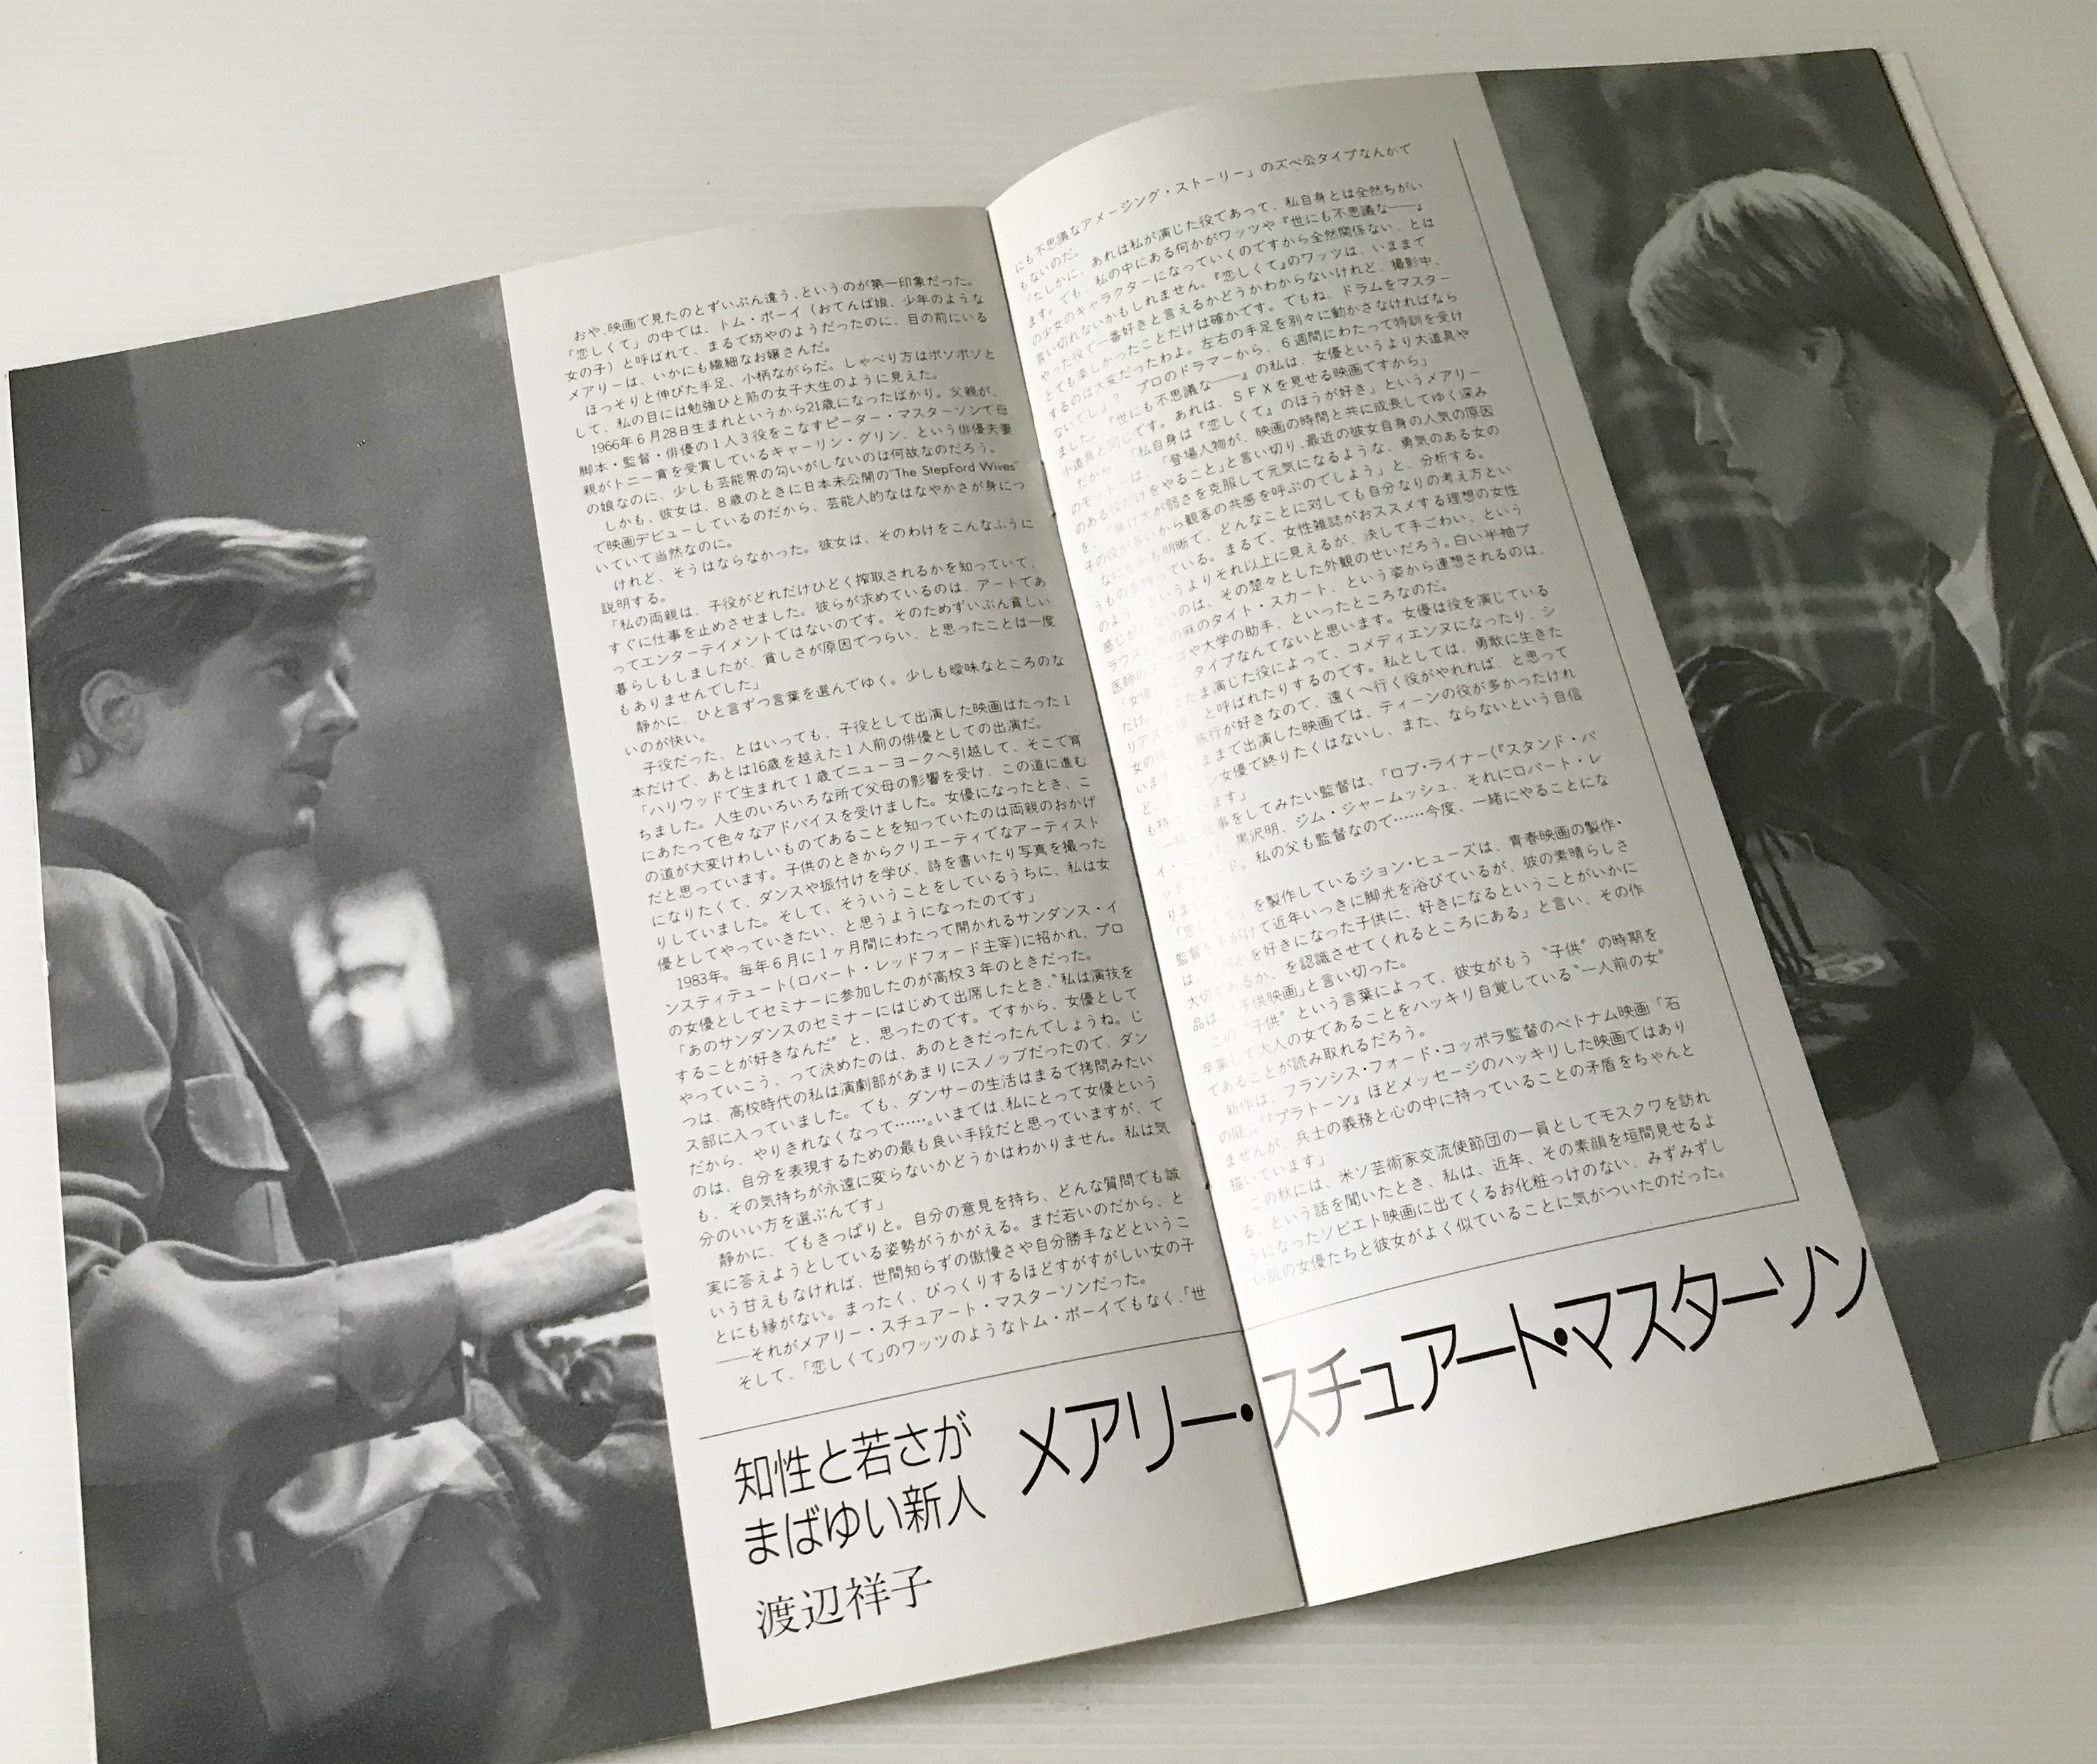 おや、映画で見たのとずいぶん違う、というのが第一印象だった。
「恋しくて」の中では、トム・ボーイ（おてんば娘、少年のような
女の子）と呼ばれて、まるで坊やのようだったのに、目の前にいる
メアリーは、いかにも繊細なお嬢さんだ。
ほっそりと伸びた手足、小柄ながらだ。しゃべり方はポンポンと
して、私の目には勉強ひと筋の女子大生のように見えた。
1966年6月28日生まれというから21歳になったばかり。父親が、
脚本・監督・俳優の1人3役をこなすピーター・マスターソンで母
親がトニー賞を受賞しているキャーリン・グリン、という俳優夫妻
の娘なのに、少しも芸能界の匂いがしないのは何故なのだろう。
しかも、彼女は、8歳のときに日本未公開の"The Stepford Wives"
で映画デビューしているのだから、芸能人的なはなやかさが身につ
いていて当然なのに。
けれど、そうはならなかった。彼女は、そのわけをこんなふうに
説明する。
「私の両親は、子役がどれだけひどく搾取されるかを知っていて、
すぐに仕事を止めさせました。彼らが求めているのは、アートであ
ってエンターテイメントではないのです。そのためずいぶん貧しい
暮らしもしましたが、貧しさが原因でつらい、と思ったことは一度
もありませんでした」
静かに、ひと言ずつ言葉を選んでゆく。少しも曖昧なところのな
いのが快い。
子役だった、とはいっても、子役として出演した映画はたった1
本だけで、あとは16歳を越えた1人前の俳優としての出演だ。
「ハリウッドで生まれて1歳でニューヨークへ引越して、そこで育
ちました。人生のいろいろな所で父母の影響を受け、この道に進む
にあたって色々なアドバイスを受けました。女優になったとき、こ
の道が大変けわしいものであることを知っていたのは両親のおかげ
だと思っています。子供のときからクリエーティでなアーティスト
になりたくて、ダンスや振付けを学び、詩を書いたり写真を撮った
りしていました。そして、そういうことをしているうちに、私は女
優としてやっていきたい、と思うようになったのです」
1983年。毎年6月に1ヶ月間にわたって開かれるサンダンス・イ
ンスティテュート(ロバート・レッドフォード主宰)に招かれ、プロ
の女優としてセミナーに参加したのが高校3年のときだった。
「あのサンダンスのセミナーにはじめて出席したとき、"私は演技を
することが好きなんだ" と、思ったのです。ですから、女優として
やっていこう、って決めたのは、あのときだったんでしょうね。じ
つは、高校時代の私は演劇部があまりにスノッブだったので、ダン
ス部に入っていました。でも、ダンサーの生活はまるで拷問みたい
だから、やりきれなくなって……。いまでは、私にとって女優という
のは、自分を表現するための最も良い手段だと思っていますが、で
も、その気持ちが永遠に変らないかどうかはわかりません。私は気
分のいい方を選ぶんです」
静かに、でもきっぱりと。自分の意見を持ち、どんな質問でも誠
実に答えようとしている姿勢がうかがえる。まだ若いのだから、と
いう甘えもなければ、世間知らずの傲慢さや自分勝手などというこ
とにも縁がない。まったく、びっくりするほどすがすがしい女の子
——それがメアリー・スチュアート・マスターソンだった。
そして、「恋しくて」のワッツのようなトム・ボーイでもなく、「世
にも不思議なアメージング・ストーリー」のズベ公タイプなんかで
もないのだ。
「たしかに、あれは私が演じた役であって、私自身とは全然ちがい
ます。でも、私の中にある何かがワッツや『世にも不思議な——』
の少女のキャラクターになっていくのですから全然関係ない、とは
言い切れないかもしれません。『恋しくて』のワッツは、いままで
やった役で一番好きと言えるかどうかわからないけれど、撮影中、
とても楽しかったことだけは確かです。でもね、ドラムをマスター
するのは大変だったわよ。左右の手足を別々に動かさなければなら
ないでしょ？ プロのドラマーから、6週間にわたって特訓を受け
ました。『世にも不思議な——』の私は、女優というより大道具や
小道具と同じです。あれは、SFXを見せる映画ですから」
だから、「私自身は『恋しくて』のほうが好き」というメアリー
のモットーは、「登場人物が、映画の時間と共に成長してゆく深み
のある役だけをやること」と言い切り、最近の彼女自身の人気の原因
を、「負け犬が弱さを克服して元気になるような、勇気のある女の
子の役が多いから観客の共感を呼ぶのでしょう」と、分析する。
なにもかも明晰で、どんなことに対しても自分なりの考え方とい
うものを持っている。まるで、女性雑誌がおススメする理想の女性
のよ というよりそれ以上に見えるが、決して手ごわい、という
感じがしないのは、その楚々とした外観のせいだろう。白い半袖ブ
ラウスに の麻のタイト・スカート、という姿から連想されるのは、
医師の ゴや大学の助手、といったところなのだ。
「女優に タイプなんてないと思います。女優は役を演じている
だけ。 たま演じた役によって、コメディエンヌになったり、シ
リアス と呼ばれたりするのです。私としては、勇敢に生きた
女の役 旅行が好きなので、遠くへ行く役がやれれば、と思って
います いままで出演した映画では、ティーンの役が多かったけれ
ど、テ ン女優で終りたくはないし、また、ならないという自信
も持 います」
一緒に仕事をしてみたい監督は、「ロブ・ライナー(『スタンド・バ
イ・ )、黒沢明、ジム・ジャームッシュ、それにロバート・レ
ッドフォード。私の父も監督なので……今度、一緒にやることにな
りました」
「恋しくて」を製作しているジョン・ヒューズは、青春映画の製作・
監督を手がけて近年いっきに脚光を浴びているが、彼の素晴らしさ
は、「何かを好きになった子供に、好きになるということがいかに
大切であるか、を認識させてくれるところにある」と言い、その作
品は、「子供映画」と言い切った。
この "子供" という言葉によって、彼女がもう "子供" の時期を
卒業して大人の女であることをハッキリ自覚している"一人前の女"
であることが読み取れるだろう。
新作は、フランシス・フォード・コッポラ監督のベトナム映画「石
の庭」。「『プラトーン』ほどメッセージのハッキリした映画ではあり
ませんが、兵士の義務と心の中に持っていることの矛盾をちゃんと
描いています」
この秋には、米ソ芸術家交流使節団の一員としてモスクワを訪れ
る、という話を聞いたとき、私は、近年、その素顔を垣間見せるよ
うになったソビエト映画に出てくるお化粧っけのない、みずみずし
い肌の女優たちと彼女がよく似ていることに気がついたのだった。
知性と若さが
まばゆい新人
メアリー・スチュアート・マスターソン
渡辺祥子